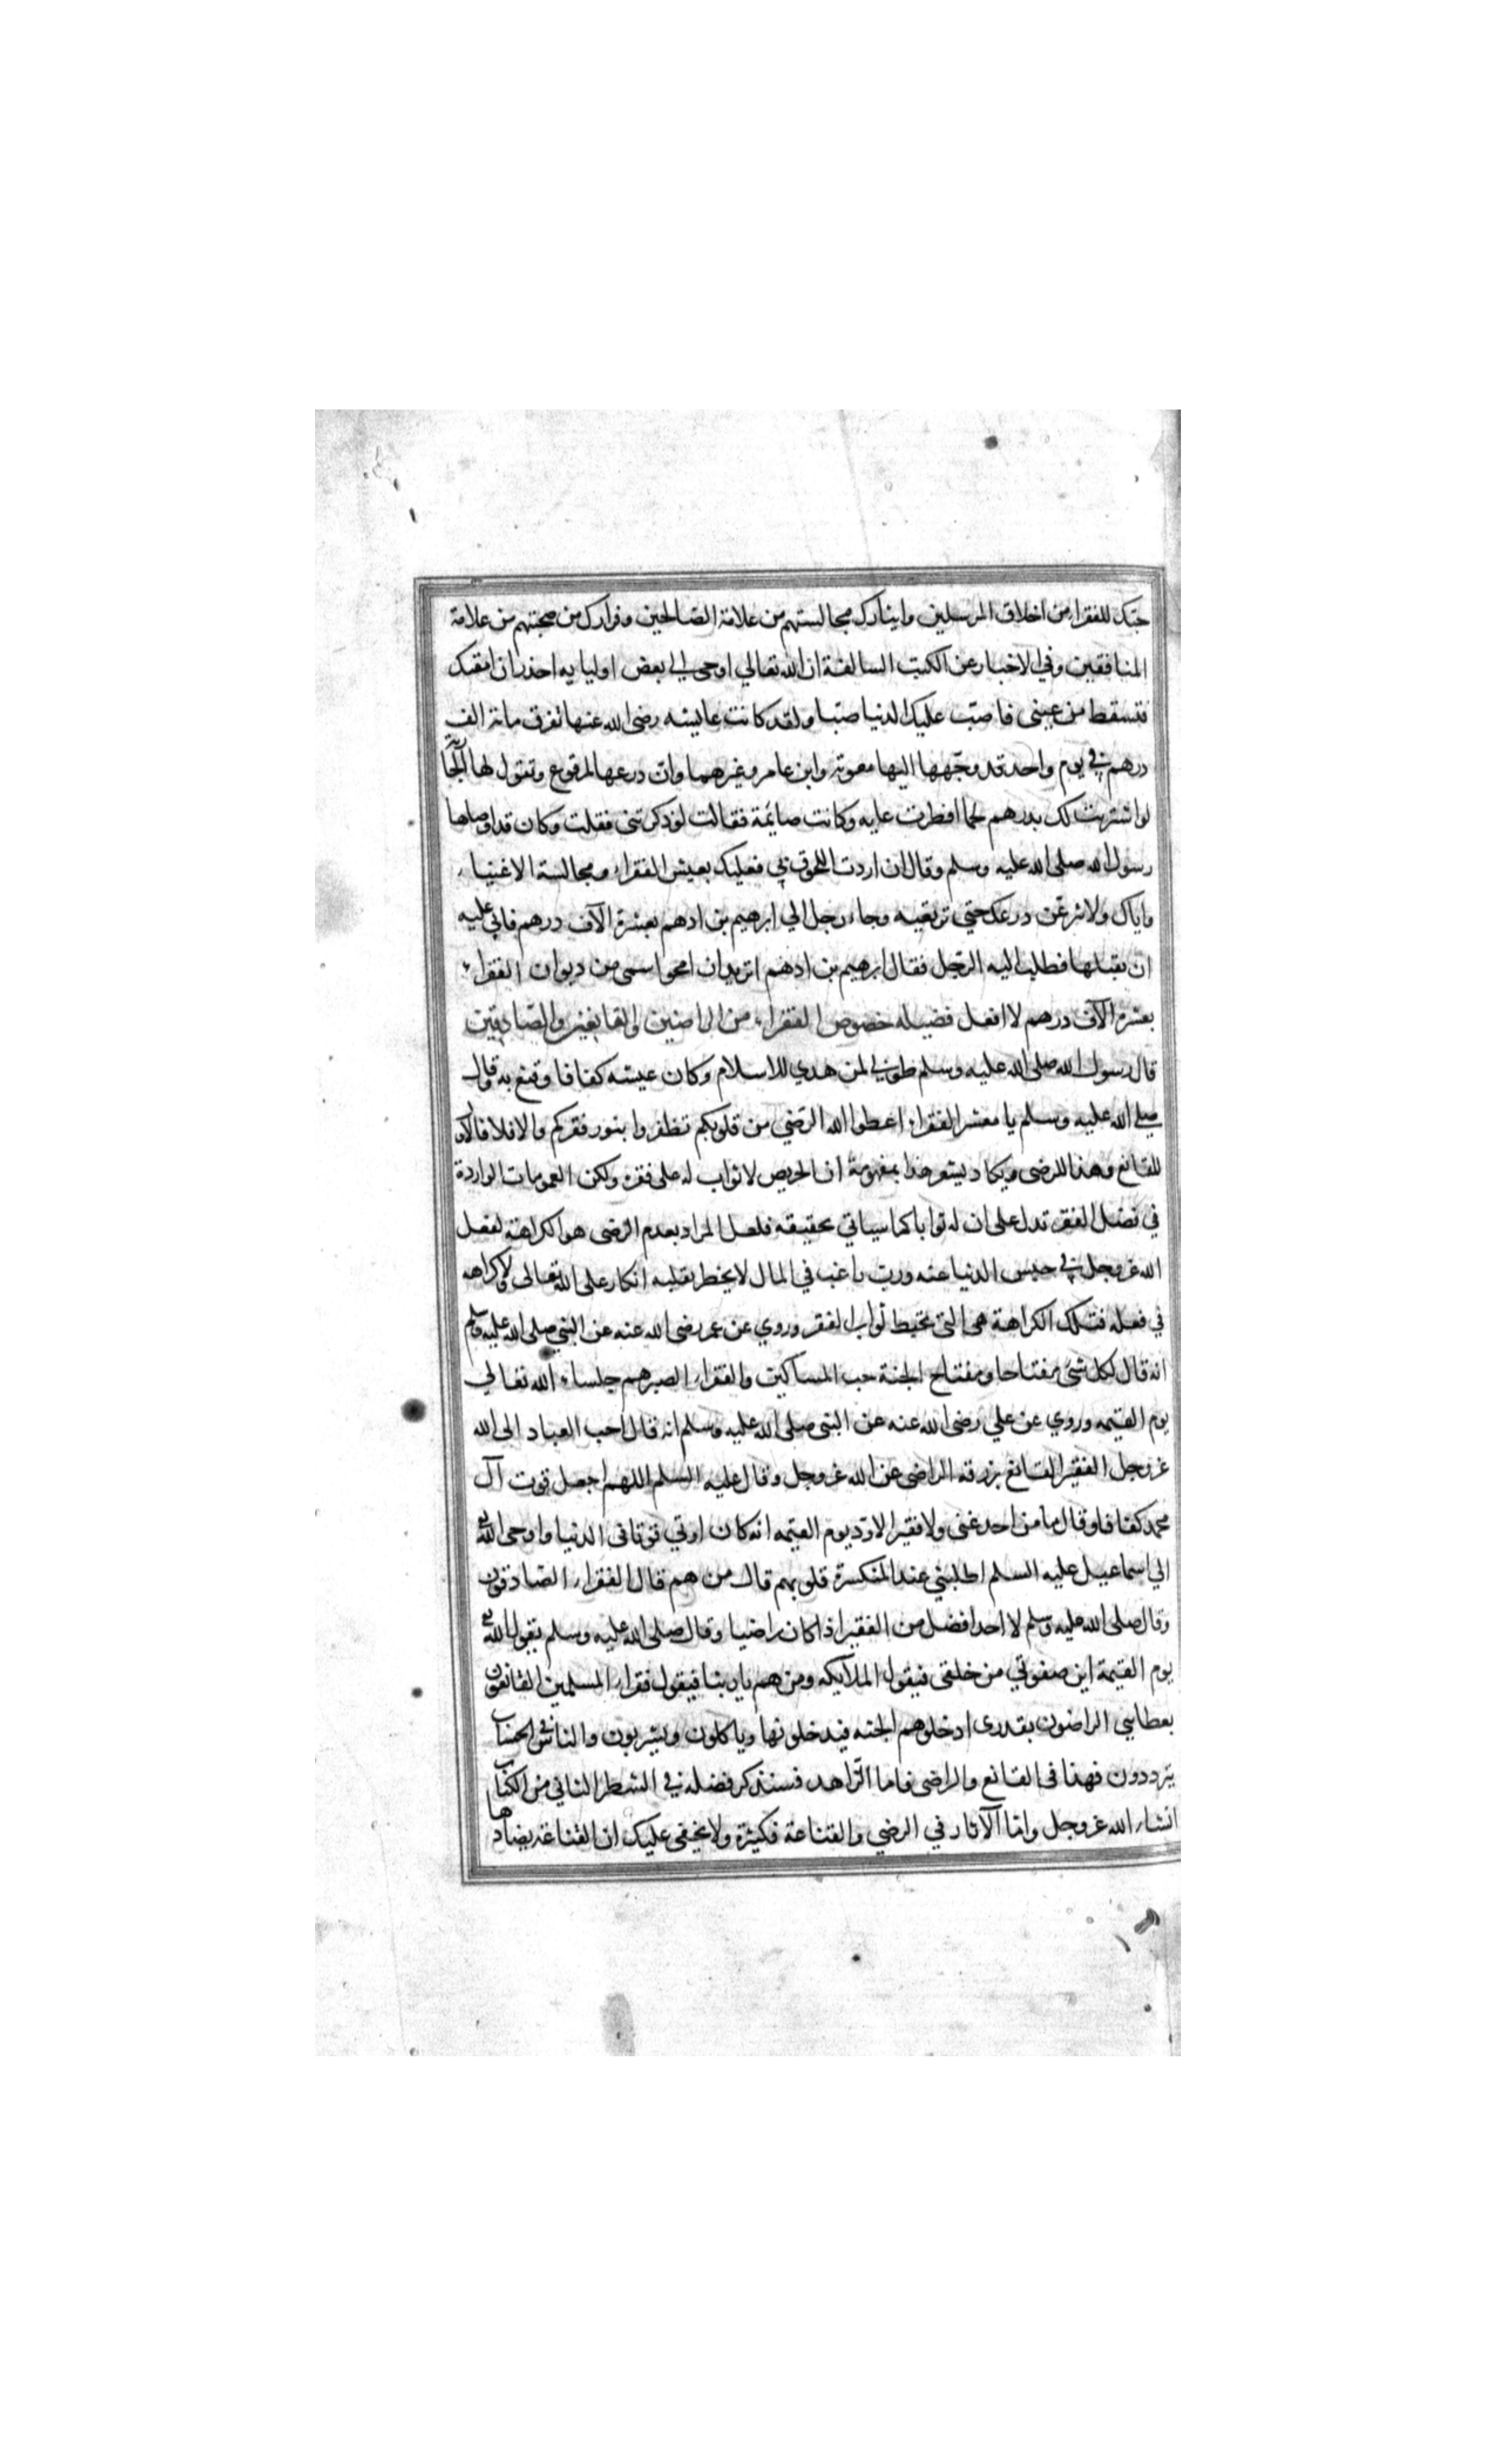 حبك للفقراء من اخلاق المرسلين وايثارك مجالستهم من علامة الصالحين وفرارك من صحبتهم من علامة
المنافقين وفي الاخبار عن الكتب السالفة ان الله تعالي اوحى الي بعض اوليايه احذر ان امقتك
فتسقط من عيني فاصبّ عليك الدنيا صبّا ولقد كانت عايشه رضى الله عنها تفرق مائة الف
درهم في يوم واحد قد وجّهها اليها معوية وابن عامر وغيرهما وان درعها لمرقوع وتقول لها الجارية
لو اشتريت لك بدرهم لحما افطرت عليه وكانت صايمة فقالت لو ذكرتنى فقلت وكان قد اوصاها
رسول الله صلى الله عليه وسلم وقال ان اردت اللحوق بي فعليك بعيش الفقراء ومجالسة الاغنياء
واياك ولا تنزعن درعك حتي ترقعيه وجاء رجل الي ابرهيم بن ادهم بعشرة الآف درهم فابي عليه
ان يقبلها فطلب اليه الرجل فقال ابرهيم بن ادهم اتريد ان امحو اسمى من ديوان الفقراء
بعشرة الآف درهم لا افعل فضيله خصوص الفقراء من الراضين والقانعين والصّادقين
قال رسول الله صلى الله عليه وسلم طوبي لمن هدي للاسلام وكان عيشه كفافا وقنع به وقال
صلي الله عليه وسلم يا معشر الفقراء اعطوا الله الرّضي من قلوبكم تظفروا بنور فقركم والا فلا فالاول
للقانع وهذا للرضى ويكاد يشعر هذا بمفهومة ان الحريص لا ثواب له على فقره ولكن العمومات الواردة
في فضل الفقر تدل على ان له ثوابا كما سياتي تحقيقه فلعل المراد بعدم الرضى هو الكراهة لفعل
الله عز وجل في حبس الدنيا عنه ورب راغب في المال لا يخطر بقلبه انكار على الله تعالى ولا كراهه
في فعله فتلك الكراهة هى التى تحبط ثواب الفقر وروي عن عمر رضى الله عنه عن النبي صلى الله عليه وسلم
انه قال لكل شئ مفتاحا ومفتاح الجنة حب المساكين والفقراء الصبر هم جلساء الله تعالي
يوم القيمه وروي عن علي رضى الله عنه عن النبى صلى الله عليه وسلم انه قال احب العباد الى الله
عز وجل الفقير القانع برزقه الراضى عن الله عز وجل وقال عليه السلم اللهم اجعل قوت آل
محمد كفافا وقال ما من احد غنى ولا فقير الا ودّ يوم القيمه انه كان اوتي قوتا فى الدنيا واوحى الله تع
الي اسماعيل عليه السلم اطلبني عند المنكسرة قلوبهم قال من هم قال الفقراء الصّادقون
وقال صلى الله عليه وسلم لا احد افضل من الفقير اذا كان راضيا وقال صلى الله عليه وسلم يقول الله تع
يوم القيمة اين صفوتي من خلقى فيقول الملآيكه ومن هم يا ربنا فيقول فقراء المسلمين القانعون
بعطايي الراضون بقدرى ادخلوهم الجنه فيدخلونها وياكلون ويشربون والناس في الحساب
يترددون فهذا فى القانع والراضى فاما الزاهد فسنذكر فضله في الشطر الثاني من الكتاب
انشاء الله عز وجل وامّا الآثار في الرضي والقناعة فكثيرة ولا يخفى عليك ان القناعة يضادها